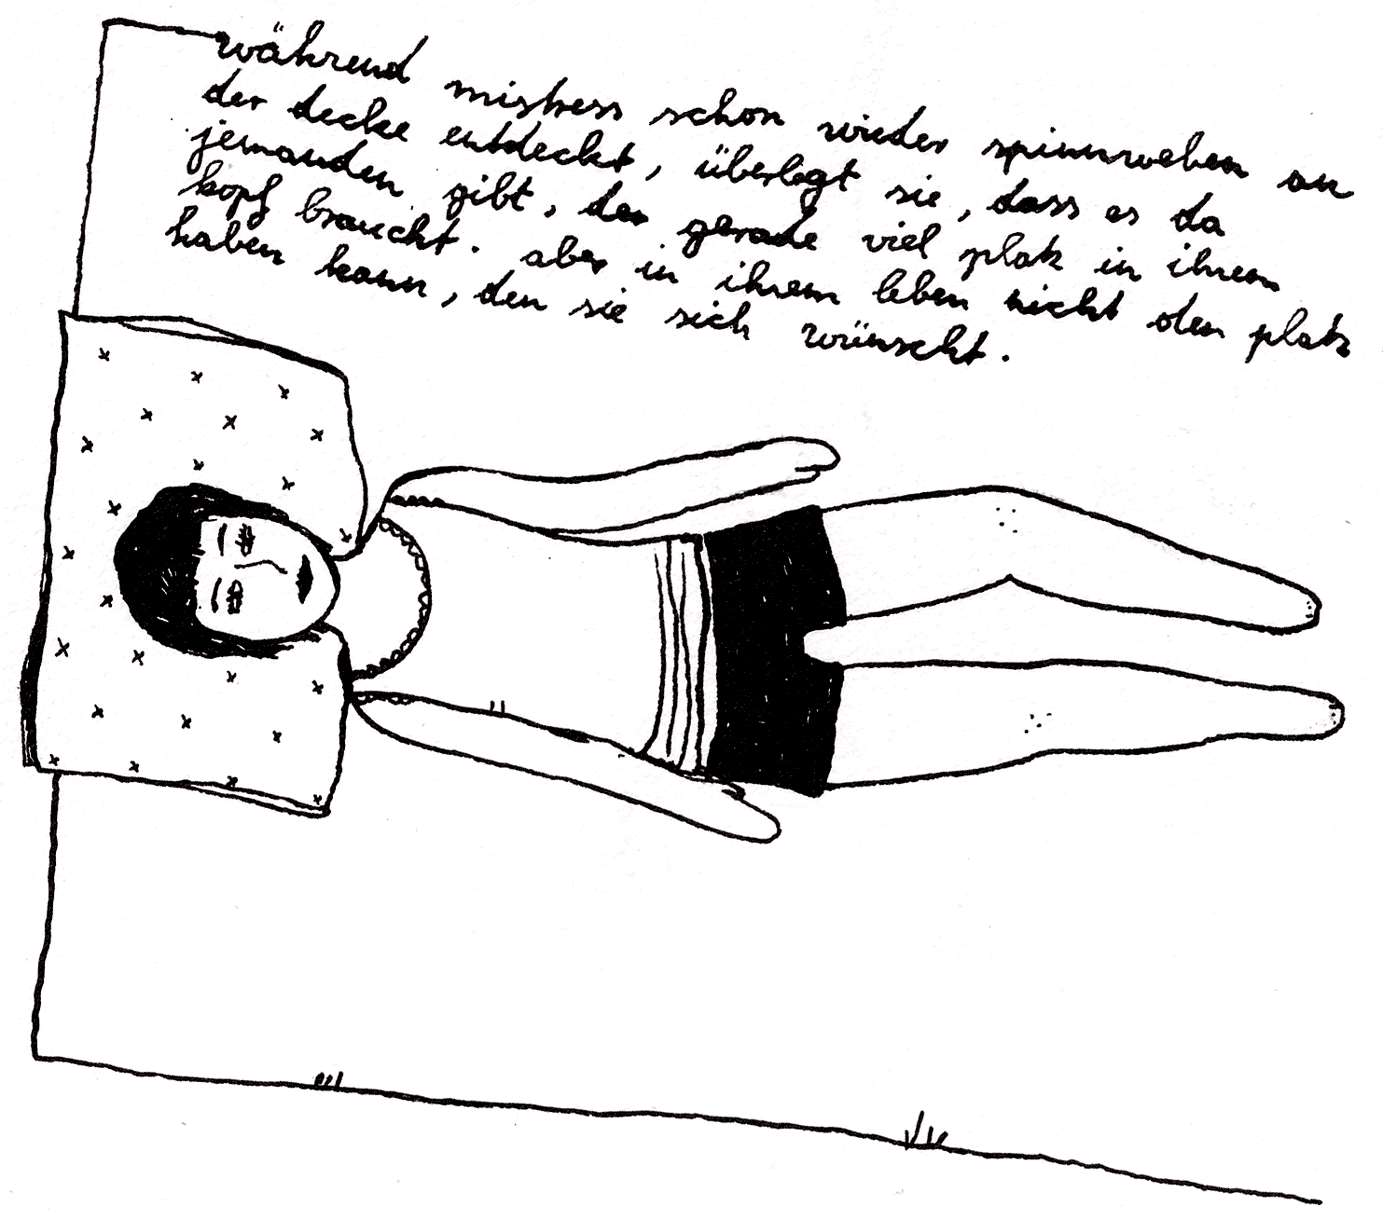 während mistress schon wieder spinnweben an
der decke entdeckt, überlegt sie, dass es da
jemanden gibt, der gerade viel platz in ihrem
kopf braucht. aber in ihrem leben nicht den platz
haben kann, den sie sich wünscht.